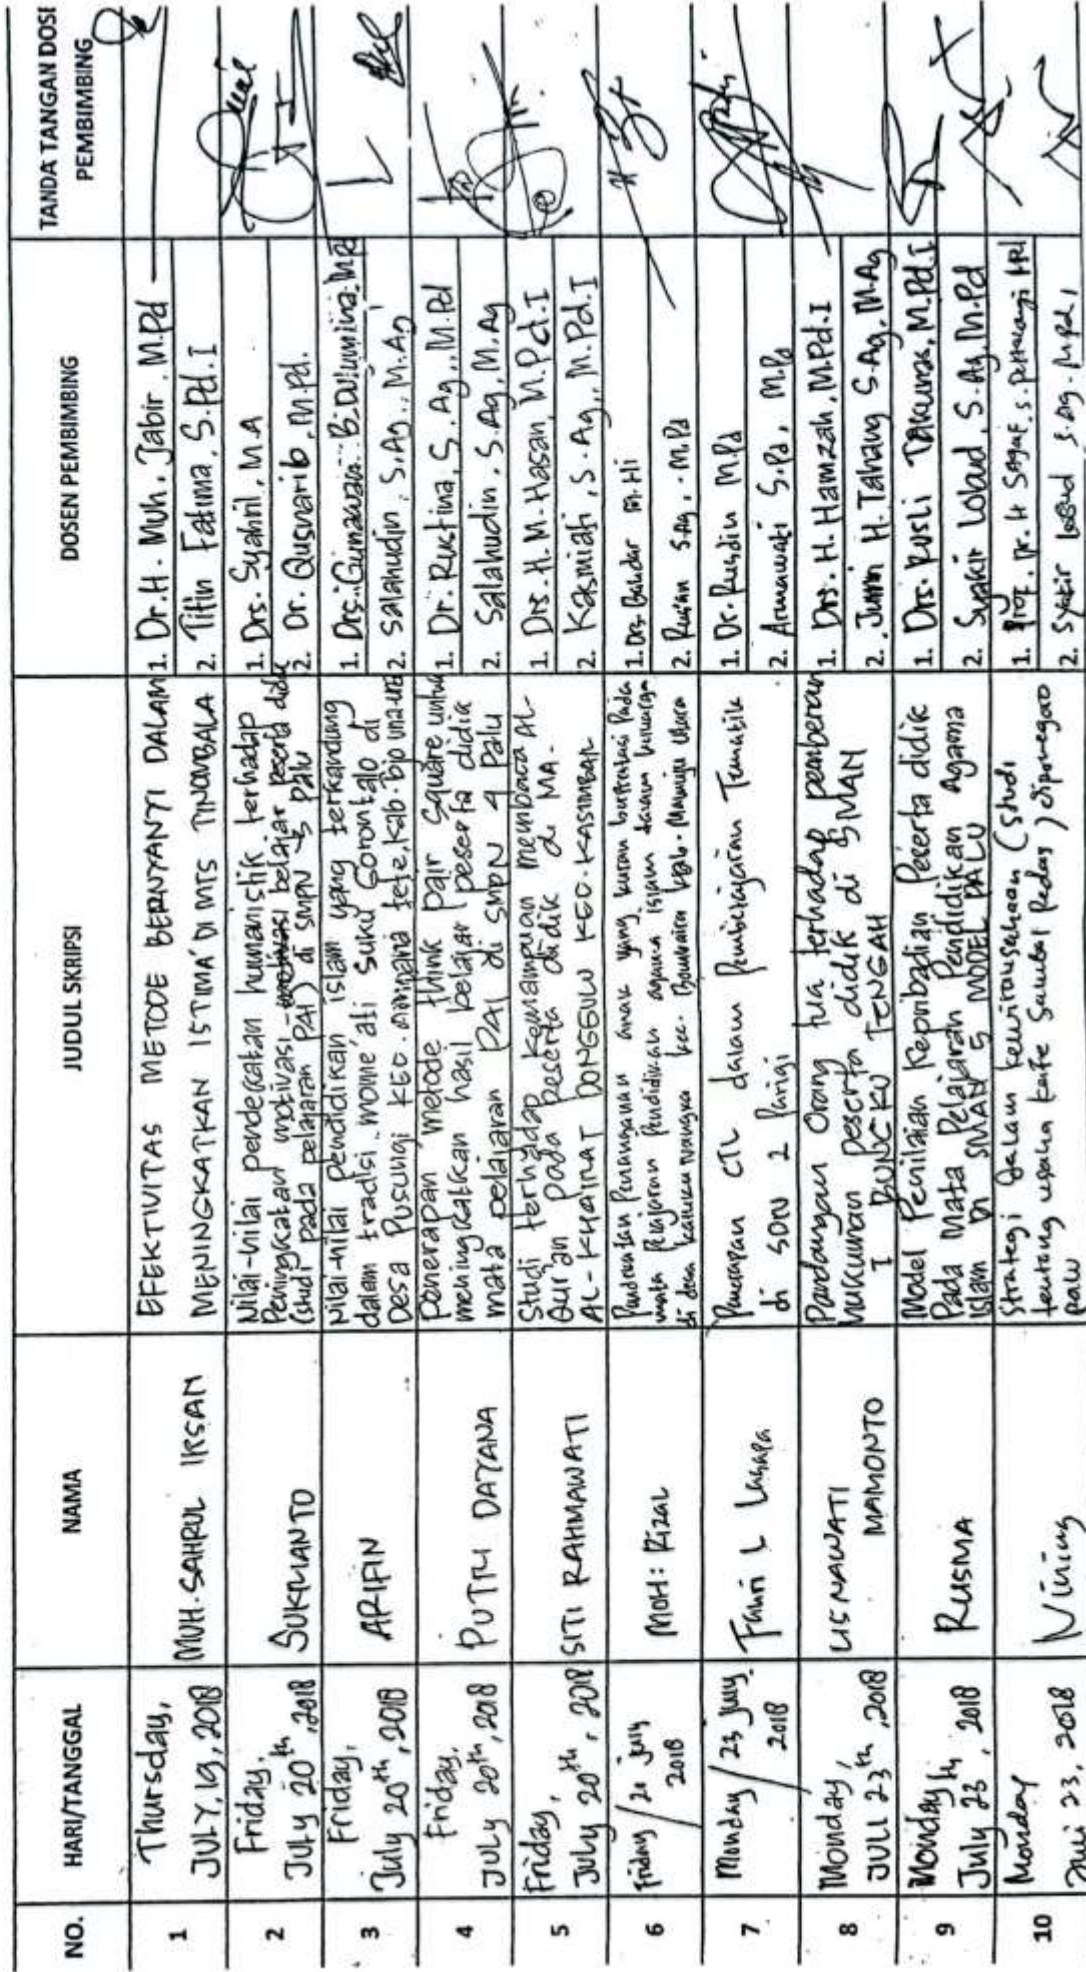 NO. HARI/TANGGAL NAMA JUDUL SKRIPSI DOSEN PEMBIMBING TANDA TANGAN DOSE
PEMBIMBING
1
Thursday,
JULY, 19, 2018
MUH. SAHRUL IKSAN
EFEKTIVITAS METODE BERNYANYI DALAM
MENINGKATKAN ISTIMA' DI MTS TINOMBALA
1. Dr. H. Muh. Jabir. M.Pd
2. Titin Fatima, S.Pd.I
2
Friday,
July 20th, 2018
SUKRIANTO
Nilai-nilai pendekatan humanistik terhadap
Peningkatan motivasi belajar peserta didik
(studi pada pelajaran PAI) di SMPN 15 PALU
1. Drs. Syahril, M.A
2. Dr. Gusnarib, M.Pd.
3
Friday,
July 20th, 2018
ARIFIN
Nilai-nilai pendidikan islam yang terkandung
dalam tradisi mome'ati suku Gorontalo di
Desa Pusungi Kec. Ampana tete, Kab. Tojo una-una
1. Drs. Gunawan B. Dulumina. M.Pd
2. Salahudin, S.Ag., M.Ag
4
Friday,
JULY 20th, 2018
PUTRI DAYANA
Penerapan metode think pair square untuk
meningkatkan hasil belajar peserta didik
mata pelajaran PAI di SMPN 4 Palu
1. Dr. Rustina, S.Ag., M.Pd
2. Salahudin, S.Ag, M.Ag
5
Friday,
July 20th, 2018
SITI RAHMAWATI
Studi terhadap kemampuan membaca AL-
Qur'an pada peserta didik di MA.
AL-KHAIRAT DONGGULU KEC. KASIMBAR
1. Drs. H. M. Hasan, M.Pd.I
2. Kasmiati, S.Ag., M.Pd.I
6
Friday / 20 July
2018
MOH. Rizal
Pendekatan Penanganan anak yang kurang berprestasi Pada
mata Pelajaran Pendidikan agama islam dalam keluarga
di desa
1. Drs. Bahdar M.Hi
2. Rusian S.Ag., M.Pd
7.
Monday / 23 July
2018
Fahri L Lasapa
Penerapan CTL dalam Pembelajaran Tematik
di SDN 2 Parigi
1. Dr. Rusdin M.Pd
2. Armawati S.Pd, M.Pd
8
Monday,
JULI 23th, 2018
LISNAWATI
MAMONTO
Pandangan Orang tua terhadap pemberian
hukuman peserta didik di SMAN
I BUNGKU TENGAH
1. Drs. H. Hamzah, M.Pd.I
2. Jumri H. Tahang S.Ag, M.Ag
9
Monday,
July 23th, 2018
Rusma
Model Penilaian Kepribadian Peserta didik
Pada Mata Pelajaran Pendidikan Agama
Islam Di SMAN 5 MODEL PALU
1. Drs. Rusli Takunas, M.Pd.I
2. Syakir Lobud, S.Ag, M.Pd
10
Monday
Juli 23, 2018
Nining
Strategi dalam kewirausahaan (studi
tentang usaha kafe Sambal Pedas) diponegoro
Palu
1. Prof. Dr. H Sagaf, S. Pettalongi MPd
2. Syakir Lobud S.Ag. M.Pd.